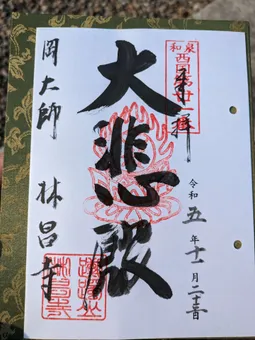 和泉
西国第廿一番
奉拝
大悲殿
令和五年十一月二十五日
岡大師
林昌寺